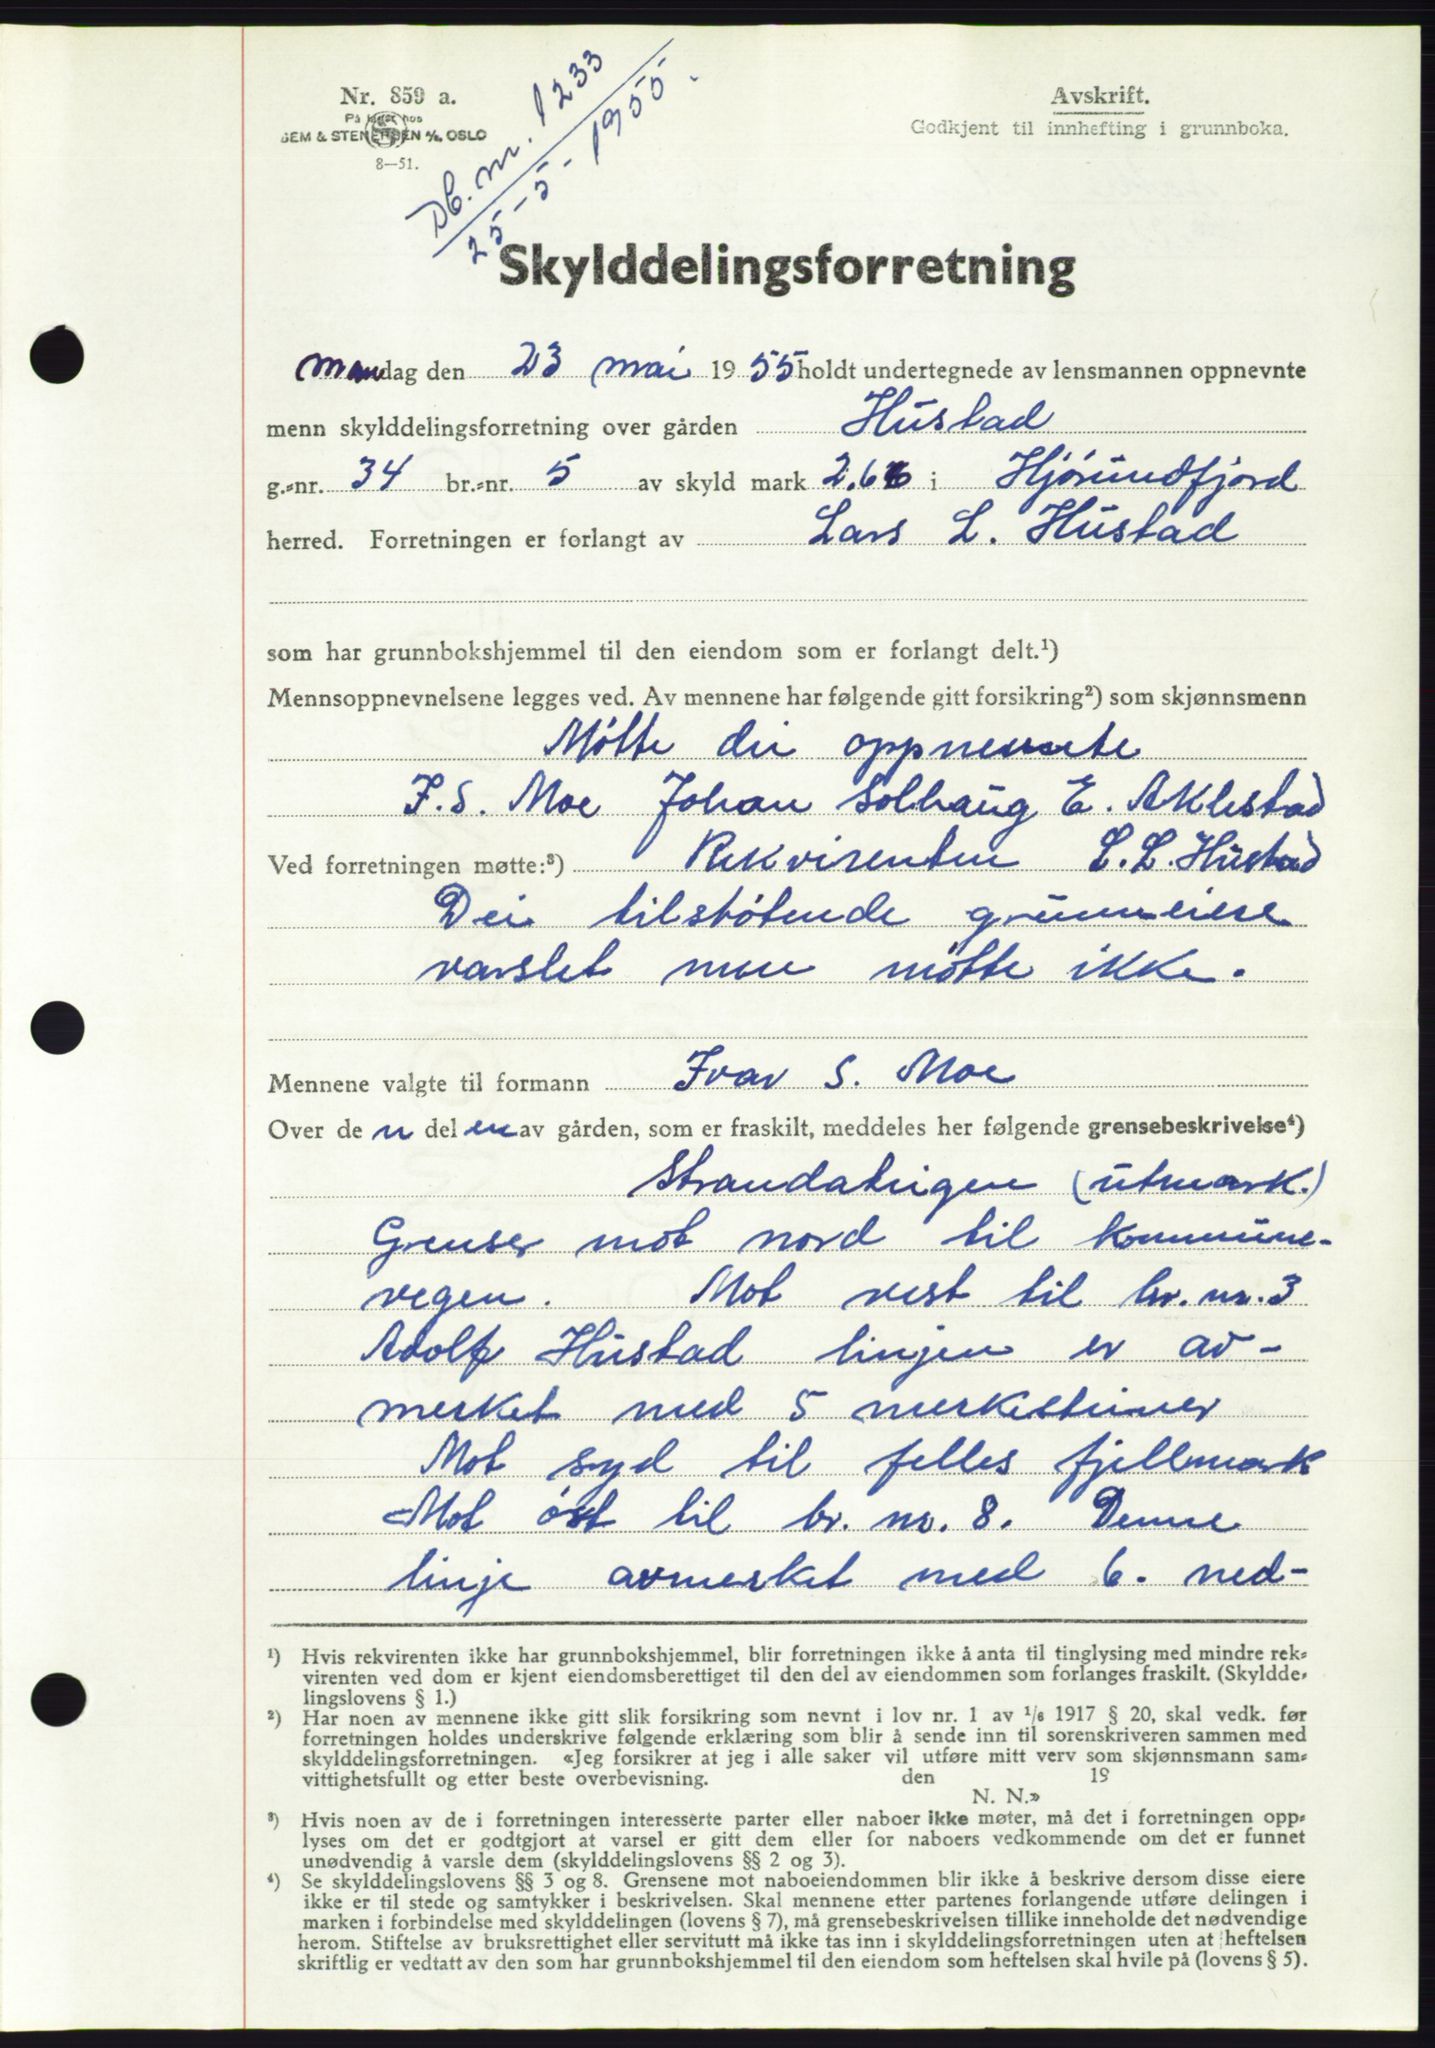 Nr. 859 a.
På lager hos
SEM & STENERSEN A/S, OSLO
8—51.
Db. nr. 1233
25-5-1955.
Avskrift.
Godkjent til innhefting i grunnboka.
Skylddelingsforretning
mandag den 23 mai 1955 holdt undertegnede av lensmannen oppnevnte
menn skylddelingsforretning over gården Hustad
g.-nr. 34 br.-nr. 5 av skyld mark 2.66 i Hjørundfjord
herred. Forretningen er forlangt av Lars L. Hustad
som har grunnbokshjemmel til den eiendom som er forlangt delt.¹)
Mennsoppnevnelsene legges ved. Av mennene har følgende gitt forsikring²) som skjønnsmenn
Møtte dei oppnevnte
I.S. Moe Johan Solhaug E. Aklestad
Ved forretningen møtte:³) Rekvirenten L.L. Hustad
Dei tilstøtende grunneiere
varslet men møtte ikke.
Mennene valgte til formann Ivar S. Moe
Over den delen av gården, som er fraskilt, meddeles her følgende grensebeskrivelse⁴)
Strandateigen (utmark.)
Grenser mot nord til kommune-
vegen. Mot vest til br. nr. 3
Adolf Hustad linjen er av-
merket med 5 merkesteiner
Mot syd til felles fjellmark
Mot øst til br. nr. 8. Denne
linje avmerket med 6. ned-
¹) Hvis rekvirenten ikke har grunnbokshjemmel, blir forretningen ikke å anta til tinglysing med mindre rek-
virenten ved dom er kjent eiendomsberettiget til den del av eiendommen som forlanges fraskilt. (Skyldde-
lingslovens § 1.)
²) Har noen av mennene ikke gitt slik forsikring som nevnt i lov nr. 1 av 1/6 1917 § 20, skal vedk. før
forretningen holdes underskrive følgende erklæring som blir å sende inn til sorenskriveren sammen med
skylddelingsforretningen. «Jeg forsikrer at jeg i alle saker vil utføre mitt verv som skjønnsmann sam-
vittighetsfullt og etter beste overbevisning. den 19
N. N.»
³) Hvis noen av de i forretningen interesserte parter eller naboer ikke møter, må det i forretningen opp-
lyses om det er godtgjort at varsel er gitt dem eller for naboers vedkommende om det er funnet
unødvendig å varsle dem (skylddelingslovens §§ 2 og 3).
⁴) Se skylddelingslovens §§ 3 og 8. Grensene mot naboeiendommen blir ikke å beskrive dersom disse eiere
ikke er til stede og samtykker i beskrivelsen. Skal mennene etter partenes forlangende utføre delingen i
marken i forbindelse med skylddelingen (lovens § 7), må grensebeskrivelsen tillike inneholde det nødvendige
herom. Stiftelse av bruksrettighet eller servitutt må ikke tas inn i skylddelingsforretningen uten at heftelsen
skriftlig er vedtatt av den som har grunnbokshjemmel til den eiendom som heftelsen skal hvile på (lovens § 5).